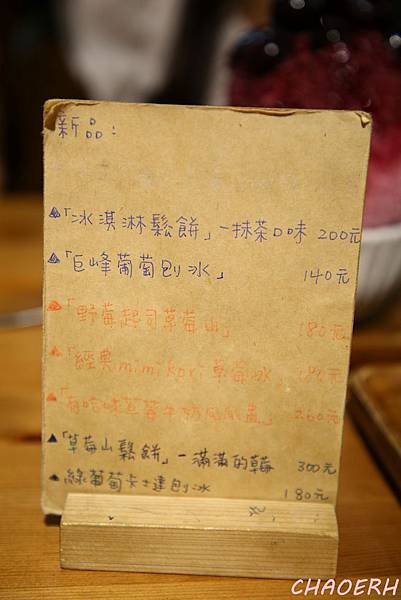 新品:
「冰淇淋鬆餅」—抹茶口味 200元
「巨峰葡萄刨冰」 140元
「野莓起司草莓山」 180元
「經典mimikori草莓冰」 180元
味 草莓牛奶 260元
「草莓山鬆餅」—滿滿的草莓 300元
綠葡萄卡士達刨冰 180元
CHAOERH